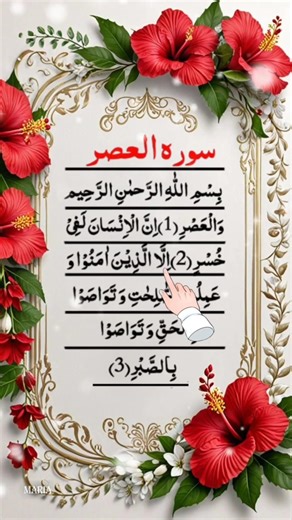 سورہ العصر
بِسْمِ اللّٰهِ الرَّحْمٰنِ الرَّحِيْمِ
وَالْعَصْرِ(1)اِنَّ الْاِنْسَانَ لَفِیْ
خُسْرٍ(2)اِلَّا الَّذِيْنَ اٰمَنُوْا وَ
وَ تَوَاصَوْا
وَ تَوَاصَوْا
بِالصَّبْرِ(3)
MARIA